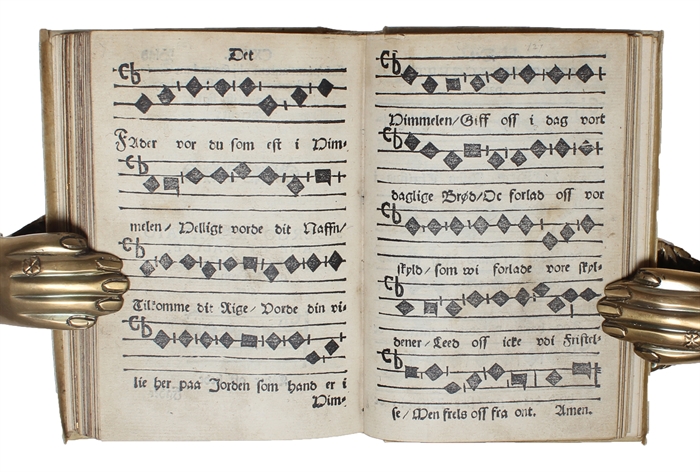 Det
FAder vor du som est i Him-
melen/ Helligt vorde dit Naffn/
Tilkomme dit Rige/ Vorde din vi-
lie her paa Jorden som hand er i
Him-
Himmelen/ Giff oss i dag vort
daglige Brød/ Oc forlad oss vor
skyld/ som wi forlade vore skyl-
dener/ Leed oss icke vdi Fristel-
se/ Men frels oss fra ont. Amen.